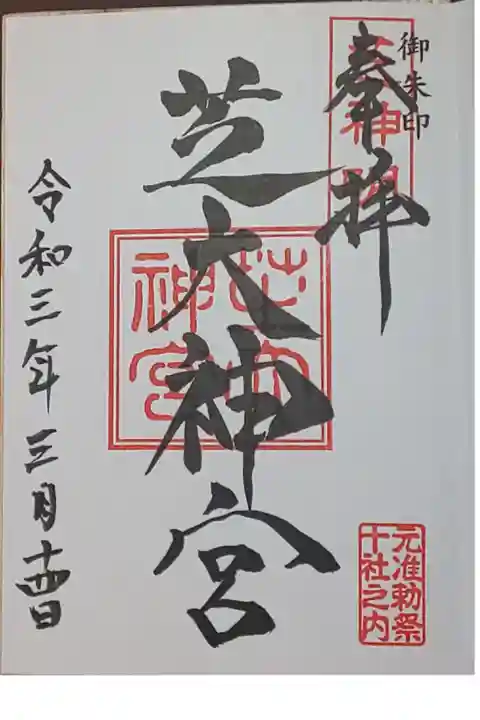 御朱印
奉拝
芝大神宮
芝大
神宮
令和三年三月十四日
元准勅祭
十社之内